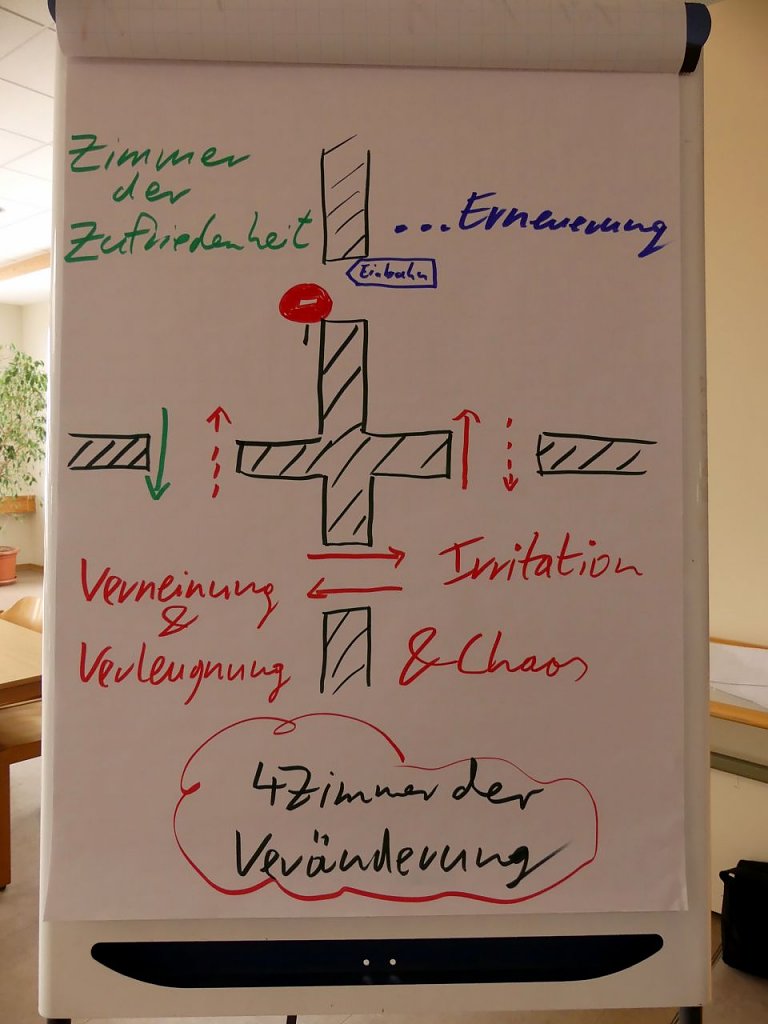 Zimmer
der
Zufriedenheit
...Erneuerung
Einbahn
Verneinung
&
Verleugnung
Irritation
& Chaos
4 Zimmer der
Veränderung